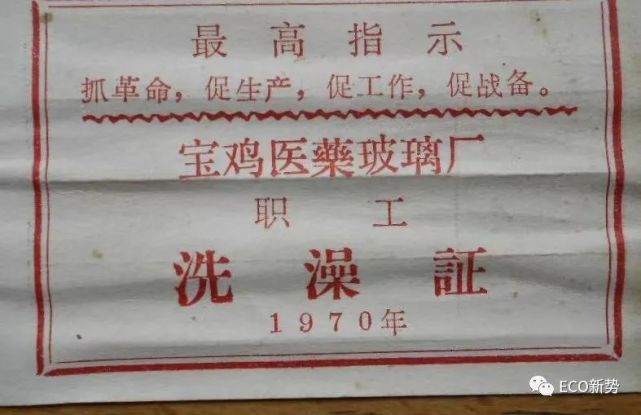 最高指示
抓革命，促生产，促工作，促战备。
宝鸡医藥玻璃厂
职工
洗澡証
1970年
ECO新势